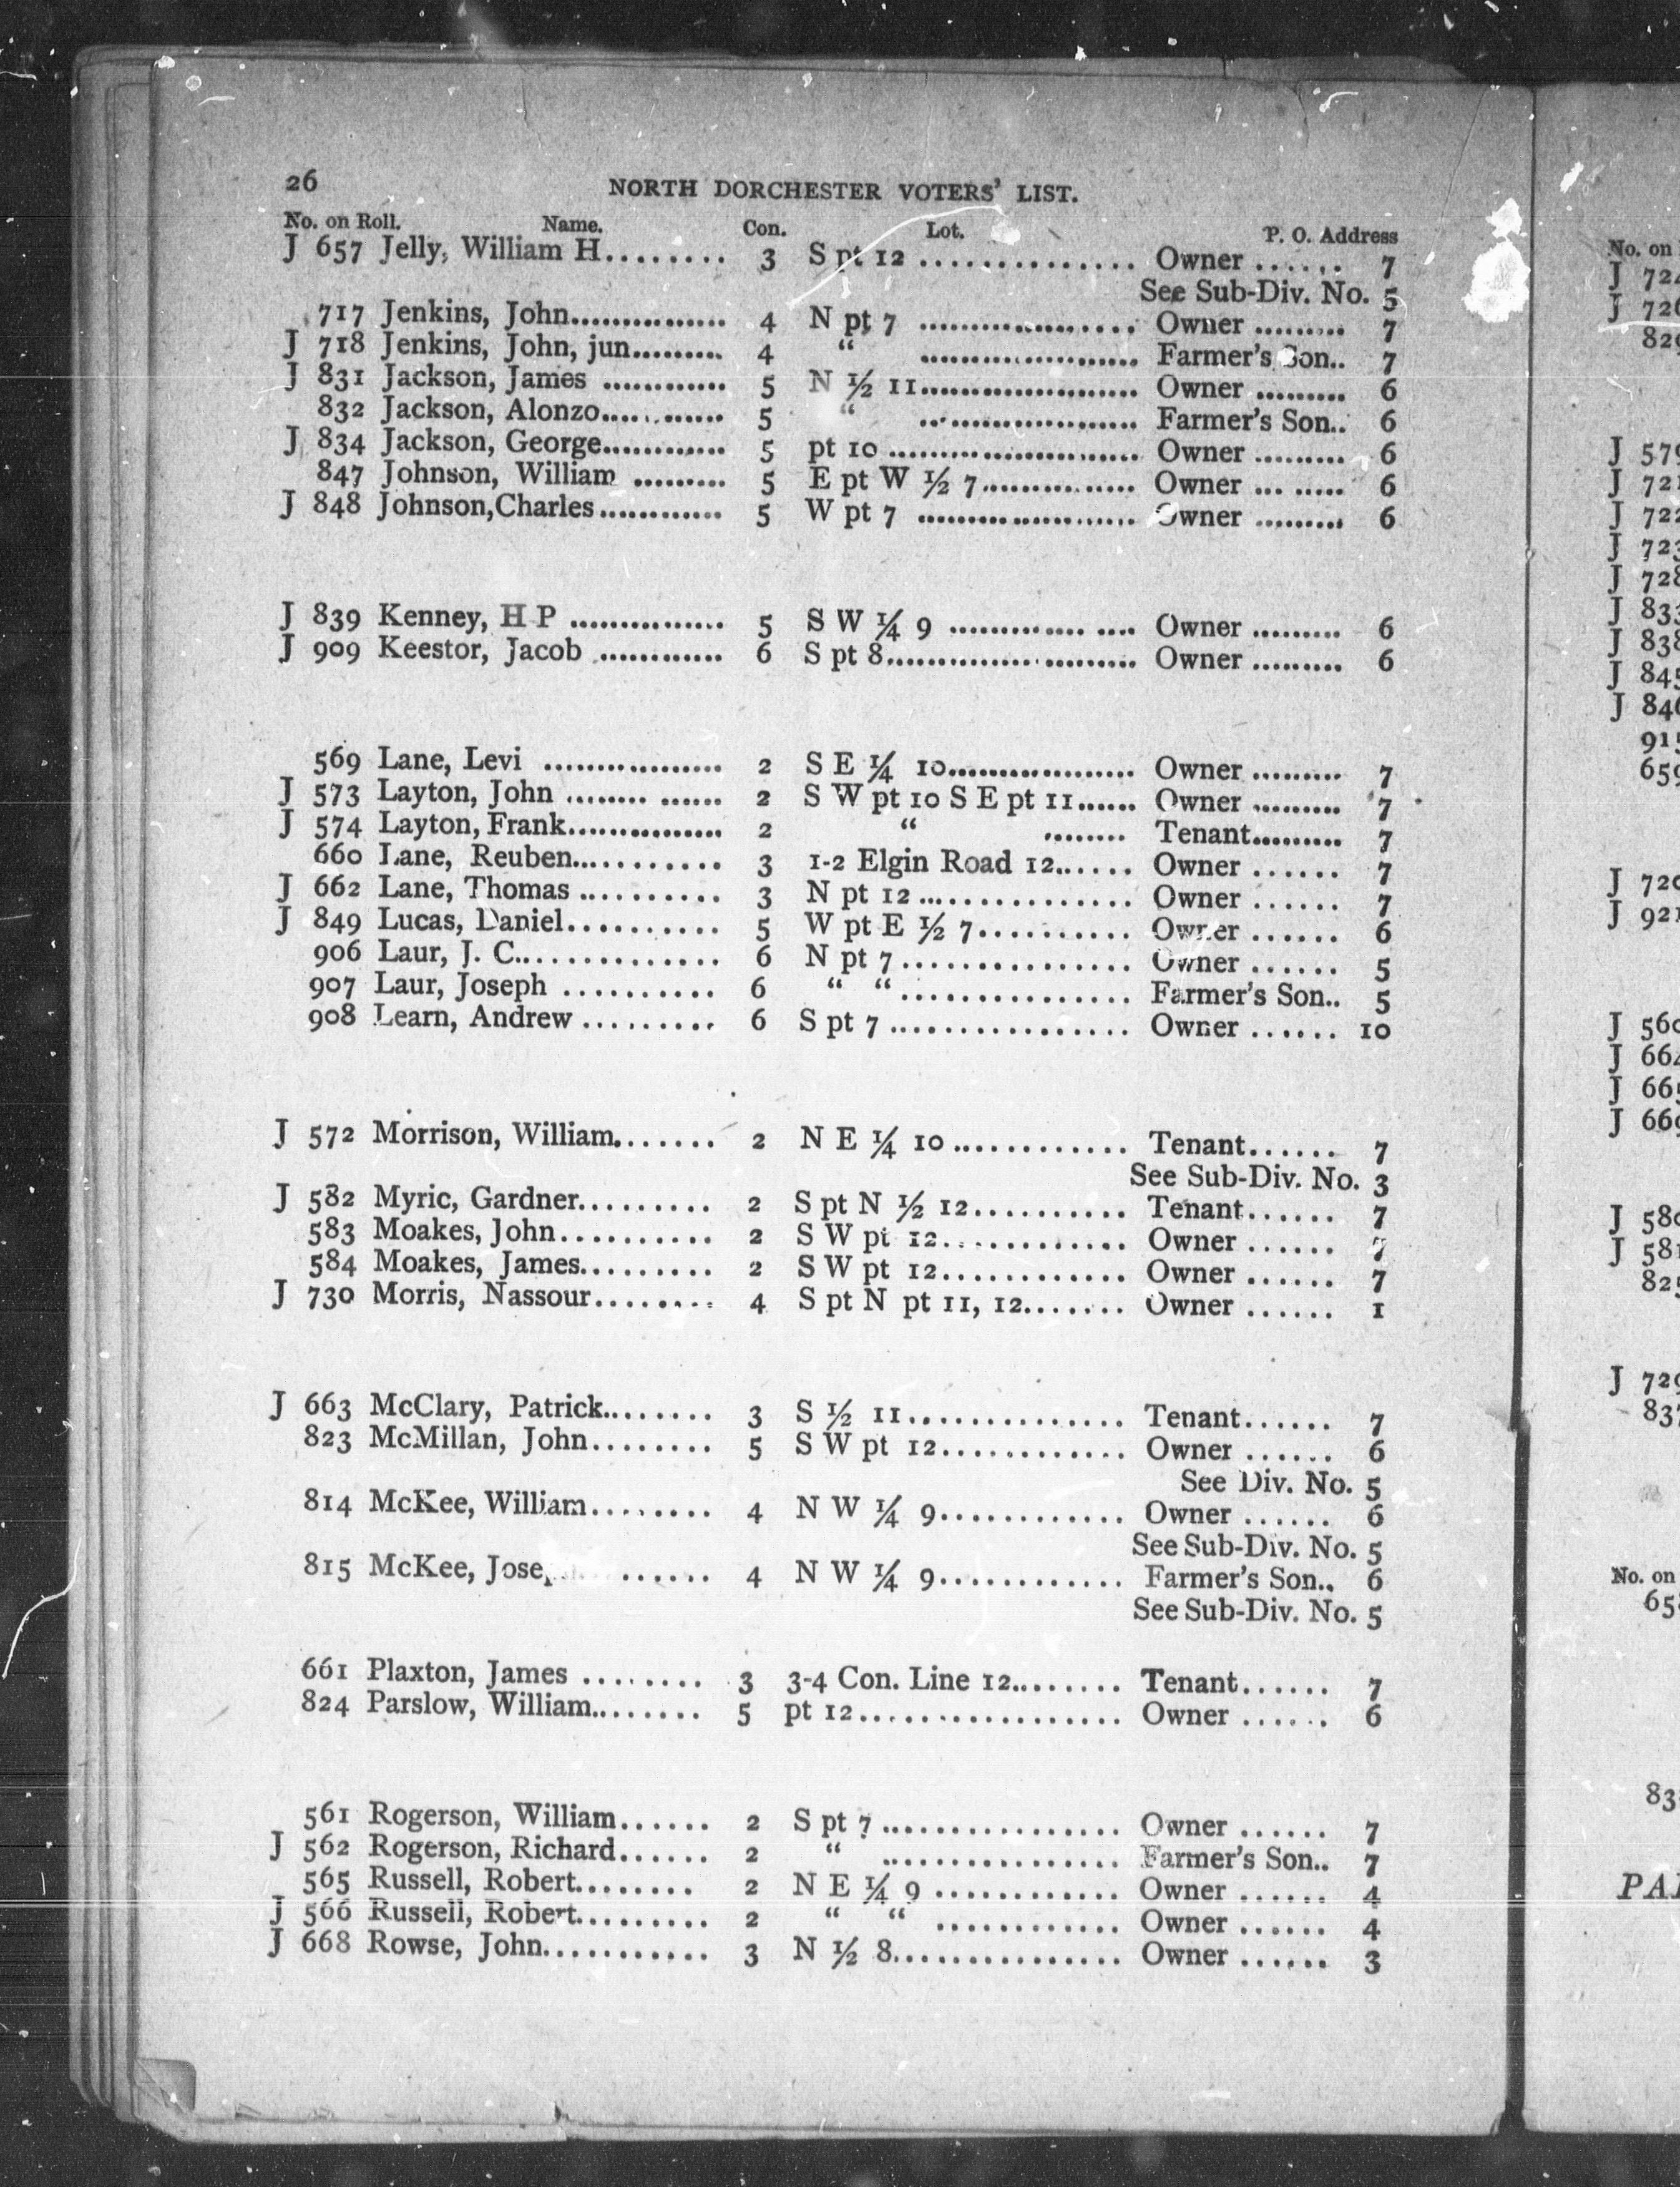 26 NORTH DORCHESTER VOTERS' LIST.
No. on Roll. Name. Con. Lot. P. O. Address
J 657 Jelly, William H........ 3 S pt 12 .............. Owner ...... 7
See Sub-Div. No. 5
717 Jenkins, John............... 4 N pt 7 .................... Owner ......... 7
J 718 Jenkins, John, jun......... 4 “ ..................... Farmer's Son.. 7
J 831 Jackson, James ............ 5 N ½ 11..................... Owner ......... 6
832 Jackson, Alonzo............ 5 “ ..................... Farmer's Son.. 6
J 834 Jackson, George............ 5 pt 10 ........................ Owner ......... 6
847 Johnson, William ......... 5 E pt W ½ 7............... Owner ... ..... 6
J 848 Johnson,Charles............ 5 W pt 7 ..................... Owner ......... 6
J 839 Kenney, H P ............... 5 S W ¼ 9 ............. .... Owner ......... 6
J 909 Keestor, Jacob ............ 6 S pt 8........................ Owner ......... 6
569 Lane, Levi ................. 2 S E ¼ 10.................. Owner ......... 7
J 573 Layton, John ........ ...... 2 S W pt 10 S E pt 11...... Owner ......... 7
J 574 Layton, Frank............... 2 “ ........ Tenant......... 7
660 Lane, Reuben.......... 3 1-2 Elgin Road 12...... Owner ...... 7
J 662 Lane, Thomas .......... 3 N pt 12 .............. Owner ...... 7
J 849 Lucas, Daniel.......... 5 W pt E ½ 7.......... Owner ...... 6
906 Laur, J. C.............. 6 N pt 7 ............... Owner ...... 5
907 Laur, Joseph .......... 6 “ “ ............... Farmer's Son.. 5
908 Learn, Andrew ......... 6 S pt 7 ................ Owner ...... 10
J 572 Morrison, William....... 2 N E ¼ 10 ............ Tenant...... 7
See Sub-Div. No. 3
J 582 Myric, Gardner......... 2 S pt N ½ 12.......... Tenant...... 7
583 Moakes, John.......... 2 S W pt 12............ Owner ...... 7
584 Moakes, James......... 2 S W pt 12............ Owner ...... 7
J 730 Morris, Nassour........ 4 S pt N pt 11, 12....... Owner ...... 1
J 663 McClary, Patrick........ 3 S ½ 11.............. Tenant...... 7
823 McMillan, John........ 5 S W pt 12............ Owner ...... 6
See Div. No. 5
814 McKee, William........ 4 N W ¼ 9............ Owner ...... 6
See Sub-Div. No. 5
815 McKee, ...... 4 N W ¼ 9............ Farmer's Son.. 6
See Sub-Div. No. 5
661 Plaxton, James ........ 3 3-4 Con. Line 12........ Tenant...... 7
824 Parslow, William........ 5 pt 12................. Owner ...... 6
561 Rogerson, William...... 2 S pt 7 ................ Owner ...... 7
J 562 Rogerson, Richard...... 2 “ ............... Farmer's Son.. 7
565 Russell, Robert........ 2 N E ¼ 9 ............ Owner ...... 4
J 566 Russell, Robert......... 2 “ “ ............ Owner ...... 4
J 668 Rowse, John........... 3 N ½ 8............... Owner ...... 3